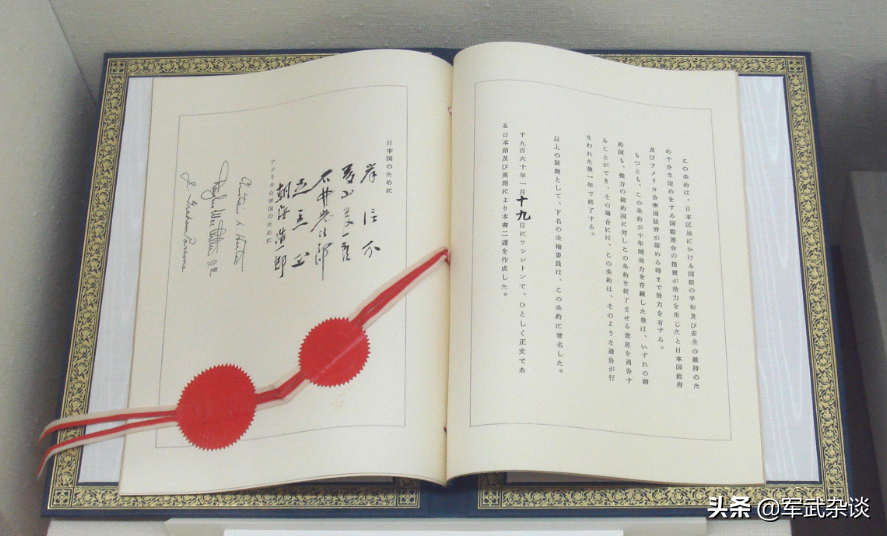 この条約は、日本区域における国際の平和及び安全の維持のた
め十分な定めをする国際連合の措置が効力を生じたと日本国政府
及びアメリカ合衆国政府が認める時まで効力を有する。
もつとも、この条約が十年間効力を存続した後は、いずれの締
約国も、他方の締約国に対しこの条約を終了させる意思を通告す
ることができ、その場合には、この条約は、そのような通告が行
なわれた後一年で終了する。
以上の証拠として、下名の全権委員は、この条約に署名した。
千九百六十年一月十九日にワシントンで、ひとしく正文であ
る日本語及び英語により本書二通を作成した。
日本国のために
岸信介
石井光次郎
足立正
アメリカ合衆国のために
J. Graham Parsons
头条 @军武杂谈